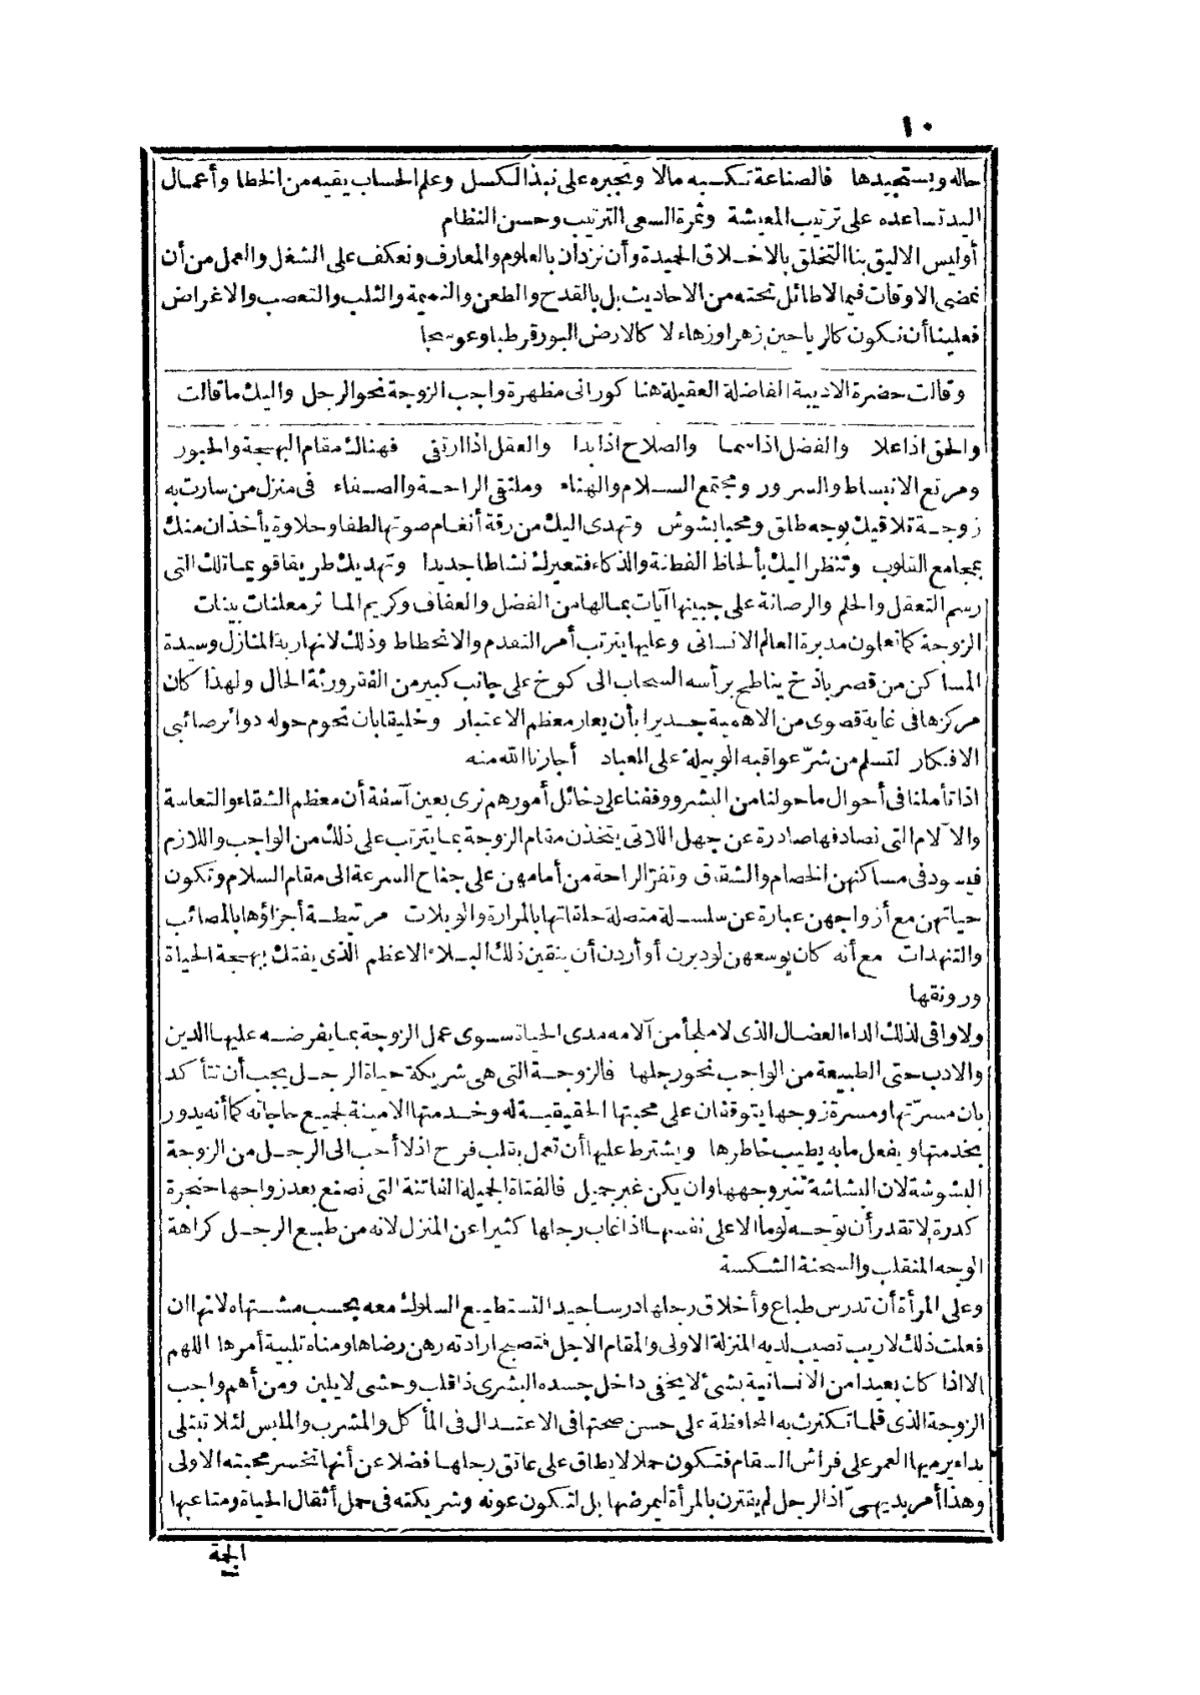 ١٠
حاله ويستجيدها فالصناعة تكسبه مالا وتجبره على نبذ الكسل وعلم الحساب يقيه من الخطا وأعمال
اليد تساعده على ترتيب المعيشة وثمرة السعى الترتيب وحسن النظام
أوليس الاليق بنا التخلق بالاخلاق الحميدة وأن نزدان بالعلوم والمعارف ونعكف على الشغل والعمل من أن
نمضى الاوقات فيما لا طائل تحته من الاحاديث بل بالقدح والطعن والنميمة والثلب والتعصب والاغراض
فعلينا أن نكون كالرياحين زهرا وزهاء لا كالارض البور قرطبا وعوسجا
وقالت حضرة الاديبة الفاضلة العقيلة هنا كورانى مظهرة واجب الزوجة نحو الرجل واليك ما قالت
والحق اذا علا والفضل اذا سما والصلاح اذا بدا والعقل اذا ارتقى فهنالك مقام البهجة والحبور
ومرتع الانبساط والسرور ومجتمع السلام والهناء وملتقى الراحة والصفاء فى منزل من سارت به
زوجة تلاقيك بوجه طلق ومحيا بشوش وتهدى اليك من رقة أنغام صوتها لطفا وحلاوة يأخذان منك
بمجامع القلوب وتنظر اليك بألحاظ الفطانة والذكاء فتعيرك نشاطا جديدا وتهديك طريقا قويما تلك التى
رسم التعقل والحلم والرصانة على جبينها آيات بمالها من الفضل والعفاف وكريم المآثر معلنات بينات
الزوجة كما تعلمون مديرة العالم الانسانى وعليها يترتب أمر التقدم والانحطاط وذلك لانها ربة المنازل وسيدة
المساكن من قصر باذخ يناطح برأسه السحاب الى كوخ على جانب كبير من الفقر ورثة الحال ولهذا كان
مركزها فى غاية قصوى من الاهمية جديرا بأن يعار معظم الاعتبار وخليقا بان تحوم حوله دوائر صائبى
الافكار لتسلم من شرّ عواقبه الوبيلة على العباد أجارنا الله منه
اذا تأملنا فى أحوال ما حولنا من البشر ووقفنا على دخائل أمورهم نرى بعين آسفة أن معظم الشقاء والتعاسة
والآلام التى نصادفها صادرة عن جهل اللاتى يتخذن مقام الزوجة بما يترتب على ذلك من الواجب واللازم
فيسود فى مساكنهن الخصام والشقاق وتفرّ الراحة من أمامهن على جناح السرعة الى مقام السلام وتكون
حياتهن مع أزواجهن عبارة عن سلسلة متصلة حلقاتها بالمرارة والويلات مرتبطة أجزاؤها بالمصائب
والتنهدات مع أنه كان بوسعهن لو دبرن أو أردن أن يتقين ذلك البلاء الاعظم الذى يفتك ببهجة الحياة
ورونقها
ولا واقى لذلك الداء العضال الذى لا ملجأ من آلامه مدى الحياة سوى عمل الزوجة بما يفرضه عليها الدين
والادب حتى الطبيعة من الواجب نحو رجلها فالزوجة التى هى شريكة حياة الرجل يجب أن تتأكد
بان مسرّتها ومسرة زوجها يتوقفان على محبتها الحقيقية له وخدمتها الامينة لجميع حاجاته كما أنه يدور
بخدمتها ويفعل ما به يطيب خاطرها ويشترط عليها أن تعمل بقلب فرح اذ لا أحب الى الرجل من الزوجة
البشوشة لان البشاشة تنير وجهها وان يكن غير جميل فالفتاة الجميلة الفاتنة التى تصنع بعد زواجها حنجرة
كدرة لا تقدر أن توجه لوما الا على نفسها اذا غاب رجلها كثيرا عن المنزل لانه من طبع الرجل كراهة
الوجه المنقلب والسحنة الشكسة
وعلى المرأة أن تدرس طباع وأخلاق رجلها درسا جيدا لتستطيع السلوك معه بحسب مشتهاه لانها ان
فعلت ذلك لا ريب تصيب لديه المنزلة الاولى والمقام الاجل فتصبح ارادته رهن رضاها ومناه تلبية أمرها اللهم
الا اذا كان بعيدا من الانسانية بشئ لا يخفى داخل جسده البشرى ذا قلب وحشى لا يلين ومن أهم واجب
الزوجة الذى قلما تكترث به المحافظة على حسن صحتها فى الاعتدال فى المأكل والمشرب والملبس لئلا تبتلى
بداء يرميها العمر على فراش السقام فتكون حملا لا يطاق على عاتق رجلها فضلا عن أنها تخسر محبته الاولى
وهذا أمر بديهىّ اذ الرجل لم يقترن بالمرأة ليمرضها بل لتكون عونه وشريكته فى حمل أثقال الحياة ومتاعبها
الجمة